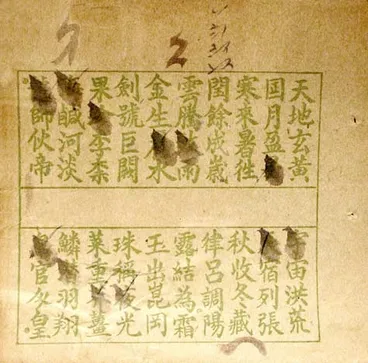 2
天地玄黃
宇宙洪荒
月盈
宿列張
寒來暑徃
秋收冬藏
閏餘成歲
律呂調陽
雲騰雨
露結為霜
金生水
玉出崑岡
劍號巨闕
珠稱夜光
果李柰
菜重芥薑
鹹河淡
鱗羽翔
師伙帝
官人皇